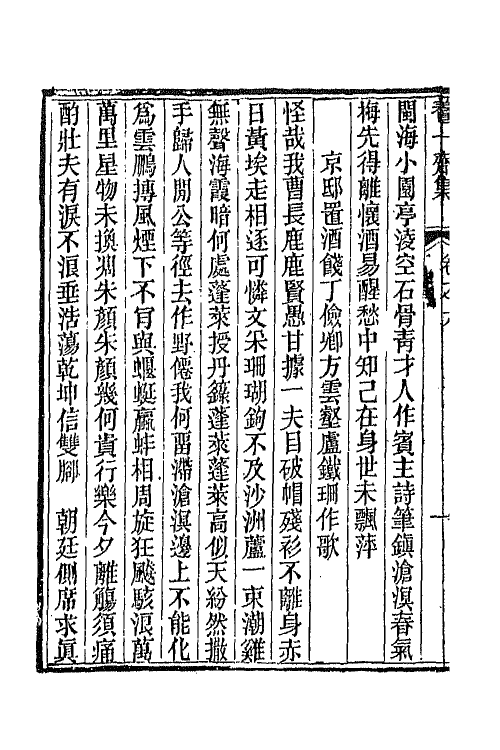 養一齋集
閩海小園亭淩空石骨靑才人作賓主詩筆鎭滄溟春氣
梅先得離懷酒易醒愁中知己在身世未飄萍
京邸置酒餞丁儉卿方雲壑盧鐵珊作歌
怪哉我曹長鹿鹿賢愚甘據一夫目破帽殘衫不離身赤
日黃埃走相逐可憐文采珊瑚鉤不及沙洲蘆一束潮雞
無聲海霞暗何處蓬萊授丹籙蓬萊蓬萊高似天紛然撒
手歸人閒公等徑去作野僊我何畱滯滄溟邊上不能化
爲雲鵬摶風煙下不肯與蝘蜓蠃蚌相周旋狂飈駭浪萬
萬里星物未換凋朱顏朱顏幾何貴行樂今夕離觴須痛
酌壯夫有淚不浪垂浩蕩乾坤信雙腳 朝廷側席求眞